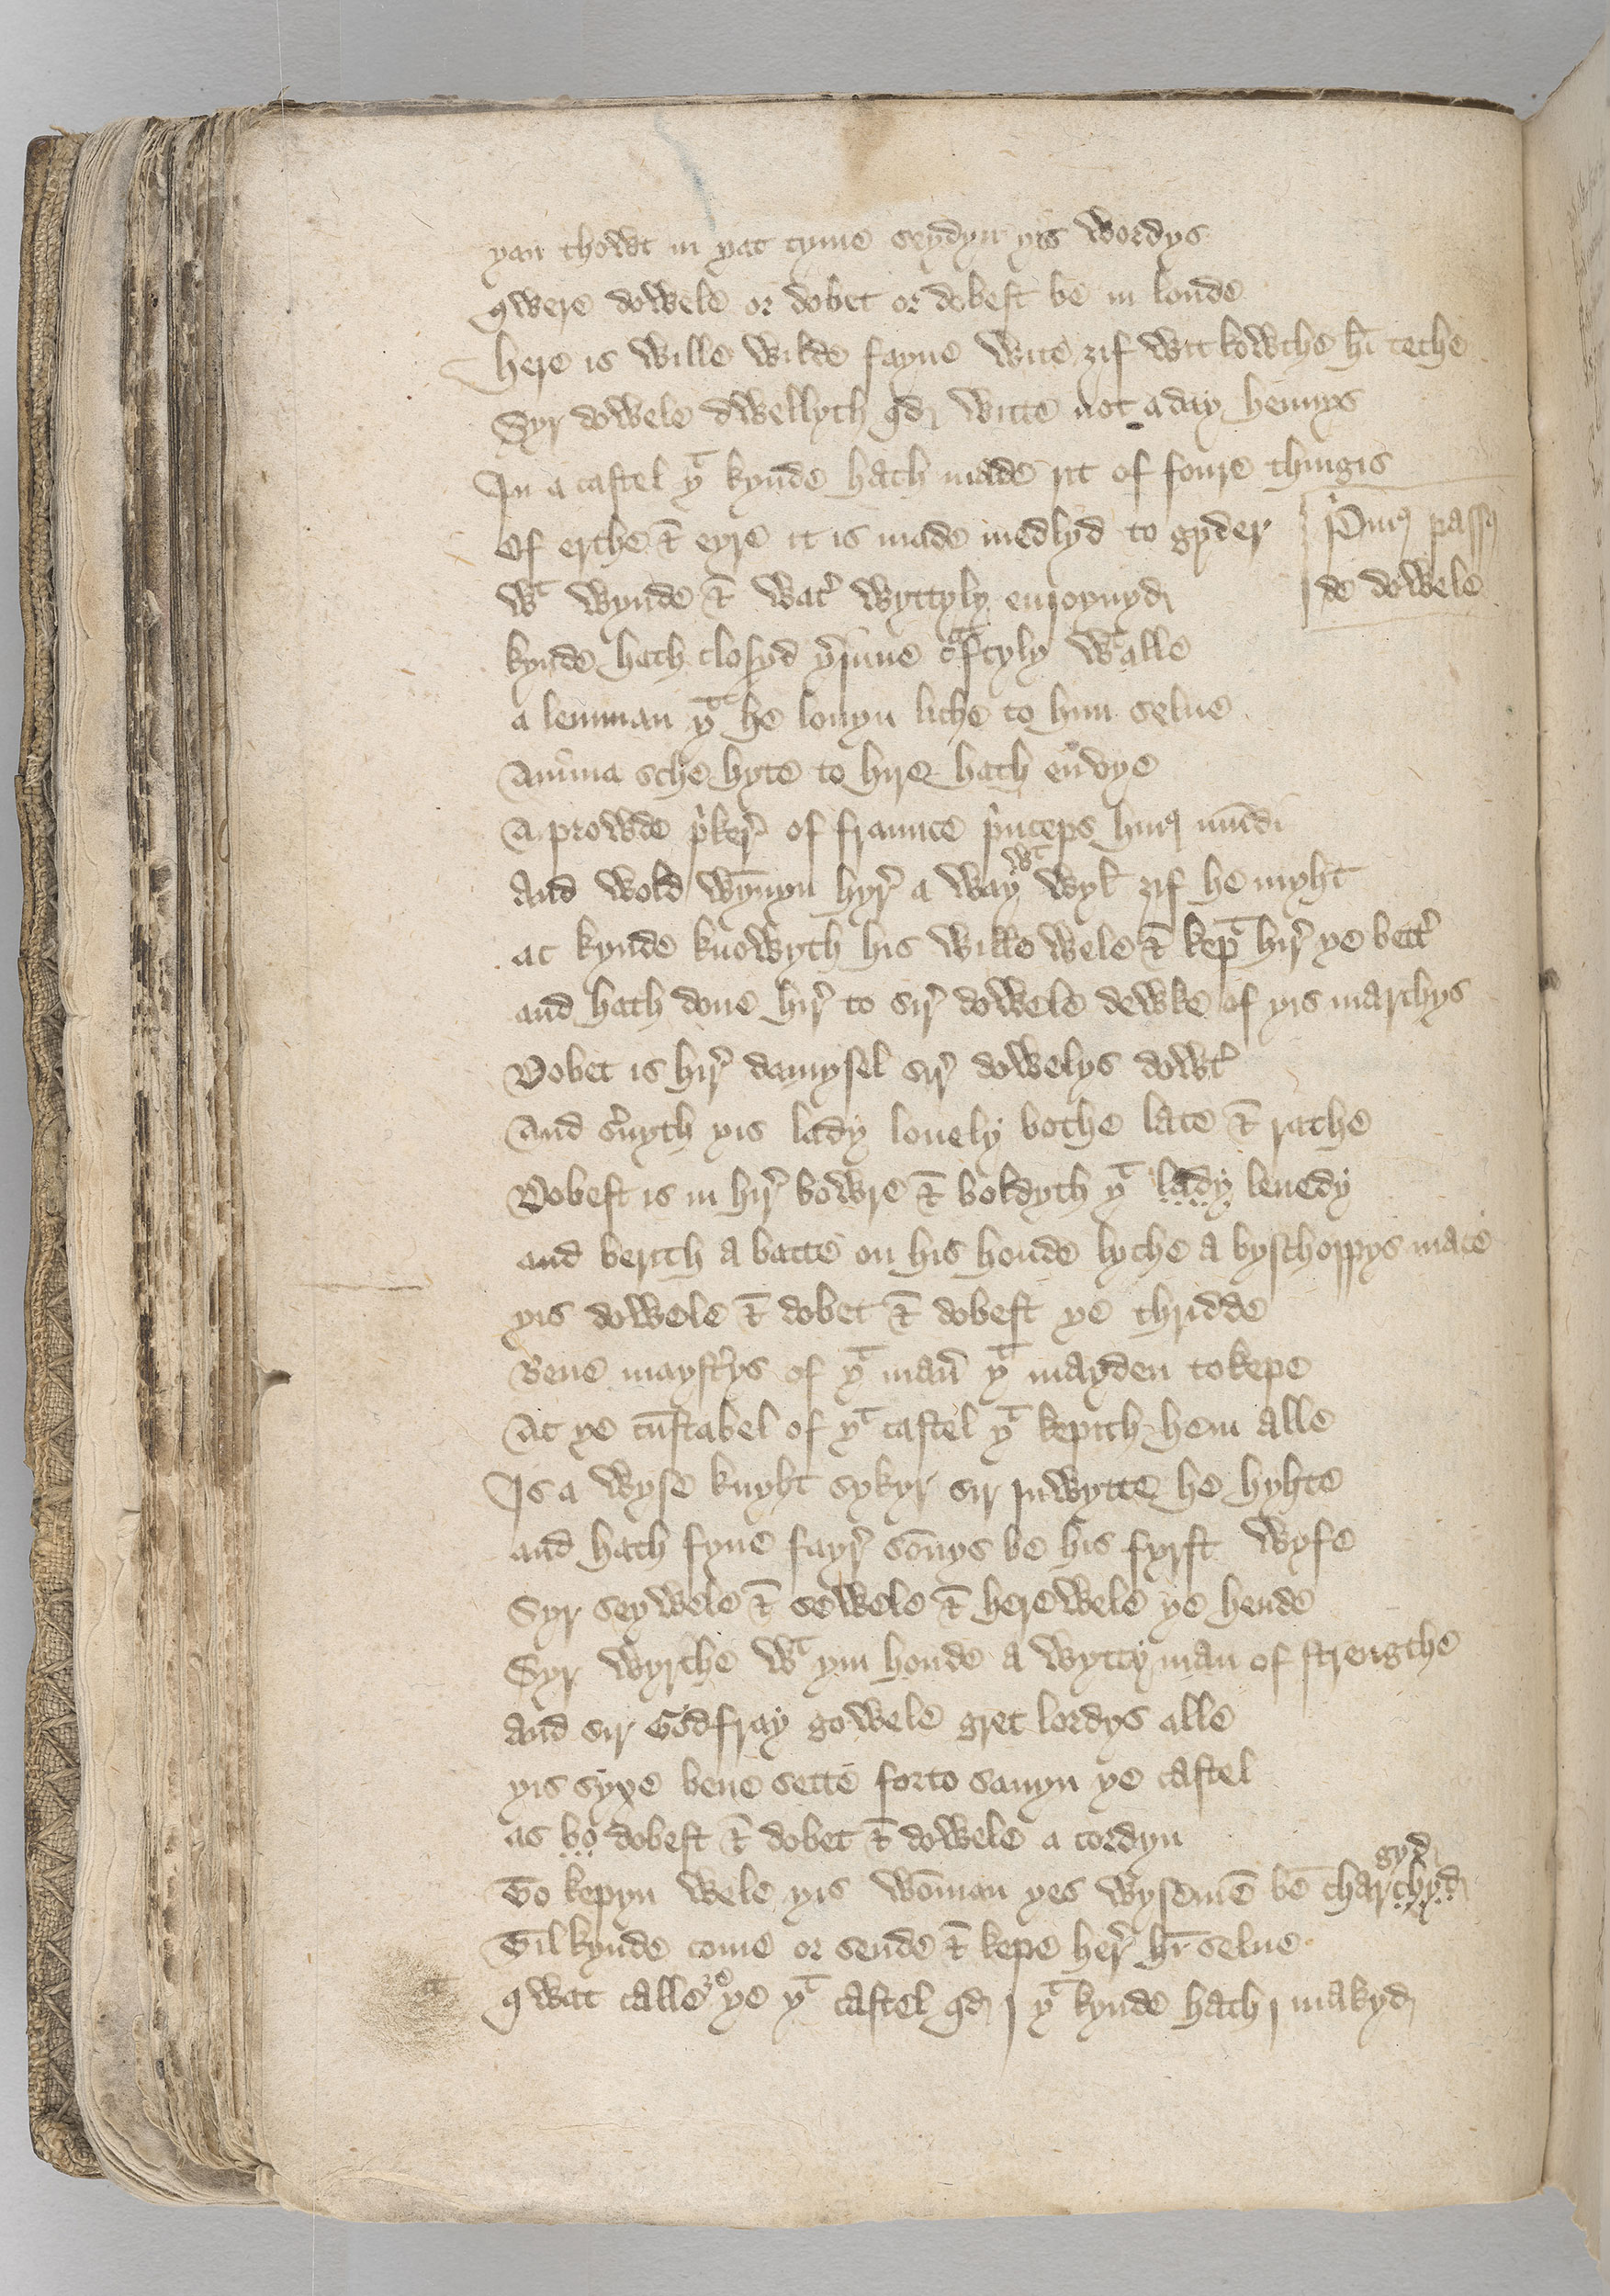 yan thowt in yat tyme seydyn yis wordys
qwere dowele or dobet or dobest be in londe
here is wille wilde fayne wite ȝif wit kowthe hī teche
Syr dowele dwellyth qd witte not a day hennys
In a castel yᵗ kynde hath made it of foure thingis
Of erthe & eyre it is made medlyd to gyder
Pimꝰ passꝰ
de dowele
wᵗ wynde & wat' wyttyly enioynyd
kynde hath closyd y'inne cᵃftyly wᵗ alle
a lemman yᵗ he louyn liche to him selue
Anima sche hyte to hire hath enuye
A prowde p'ker' of fraunce p'nceps huiꝰ mūdi
And wold wȳnyn hyr' a way wᵗ wyl ȝif he myht
ac kynde knowyth his wille wele & kepᵗ hir' ye bett'
and hath done hir' to sir' dowele dewke of yis marchys
Dobet is hir' damysel sir' dowelys dowt'
And s'uyth yis lady louely bothe late & rathe
Dobest is in hir' bowre & boldyth yᵗ lady leuedy
and berith a batte on his honde lyche a byschoppys mace
yis dowele & dobet & dobest ye thridde
Bene mayst'ys of yᵗ man' yᵗ mayden to kepe
Ac ye cūstabel of yᵗ castel yᵗ kepith hem alle
Is a wyse knyht sykyr sir inwytte he hyhte
and hath fyue fayr' sōnys be his fyrst wyfe
Syr seywele & sewele & herewele ye hende
Syr wyrche wᵗ yin honde a wytty man of strengthe
And sir Godfray gowele gret lordys alle
yis syxe bene sette forto sauyn ye castel
as bo dobest & dobet & dowele a cordyn
To kepyn wele yis wōman yes wysemē bē charchyd gyd
Til kynde come or sende & kepe her' hī selue
qwat calle ȝe ye yᵗ castel qd I yᵗ kynde hath I makyd